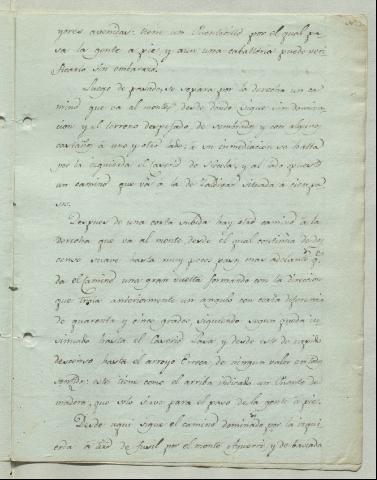 yores avenidas: tiene un Puentecillo por el qual pa
sa la gente a pie, y aun una caballeria puede veri
ficarlo sin embarazo.
Luego de pasado, se separa por la derecha un ca
mino que va al monte, desde donde sigue sin domina
cion y el terreno despejado, de sembrados y con algunos
castaños a uno y otro lado; a su inmediacion se halla
por la izquierda el caserio de y al lado opuesto
un camino que va a la de situada a cien pa
sos.
Despues de una corta subida hay otro camino a la
derecha que va al monte desde el qual continua de des
censo suave hasta muy pocos pasos mas adelante q.e
da el Camino una gran vuelta formando con la direccion
que traia anteriormente un angulo con corta diferencia
de quarenta y cinco grados, siguiendo segun queda in
sinuado hasta el Caserio y desde este de rapido
descenso hasta el arroyo Erreca, de ningun valor en todo
sentido: este tiene como el arriba indicado un Puente de
madera, que solo sirve para el paso de la gente a pie.
Desde aqui sigue el camino dominado por la izqui
erda a tiro de fusil por el monte y de bajada